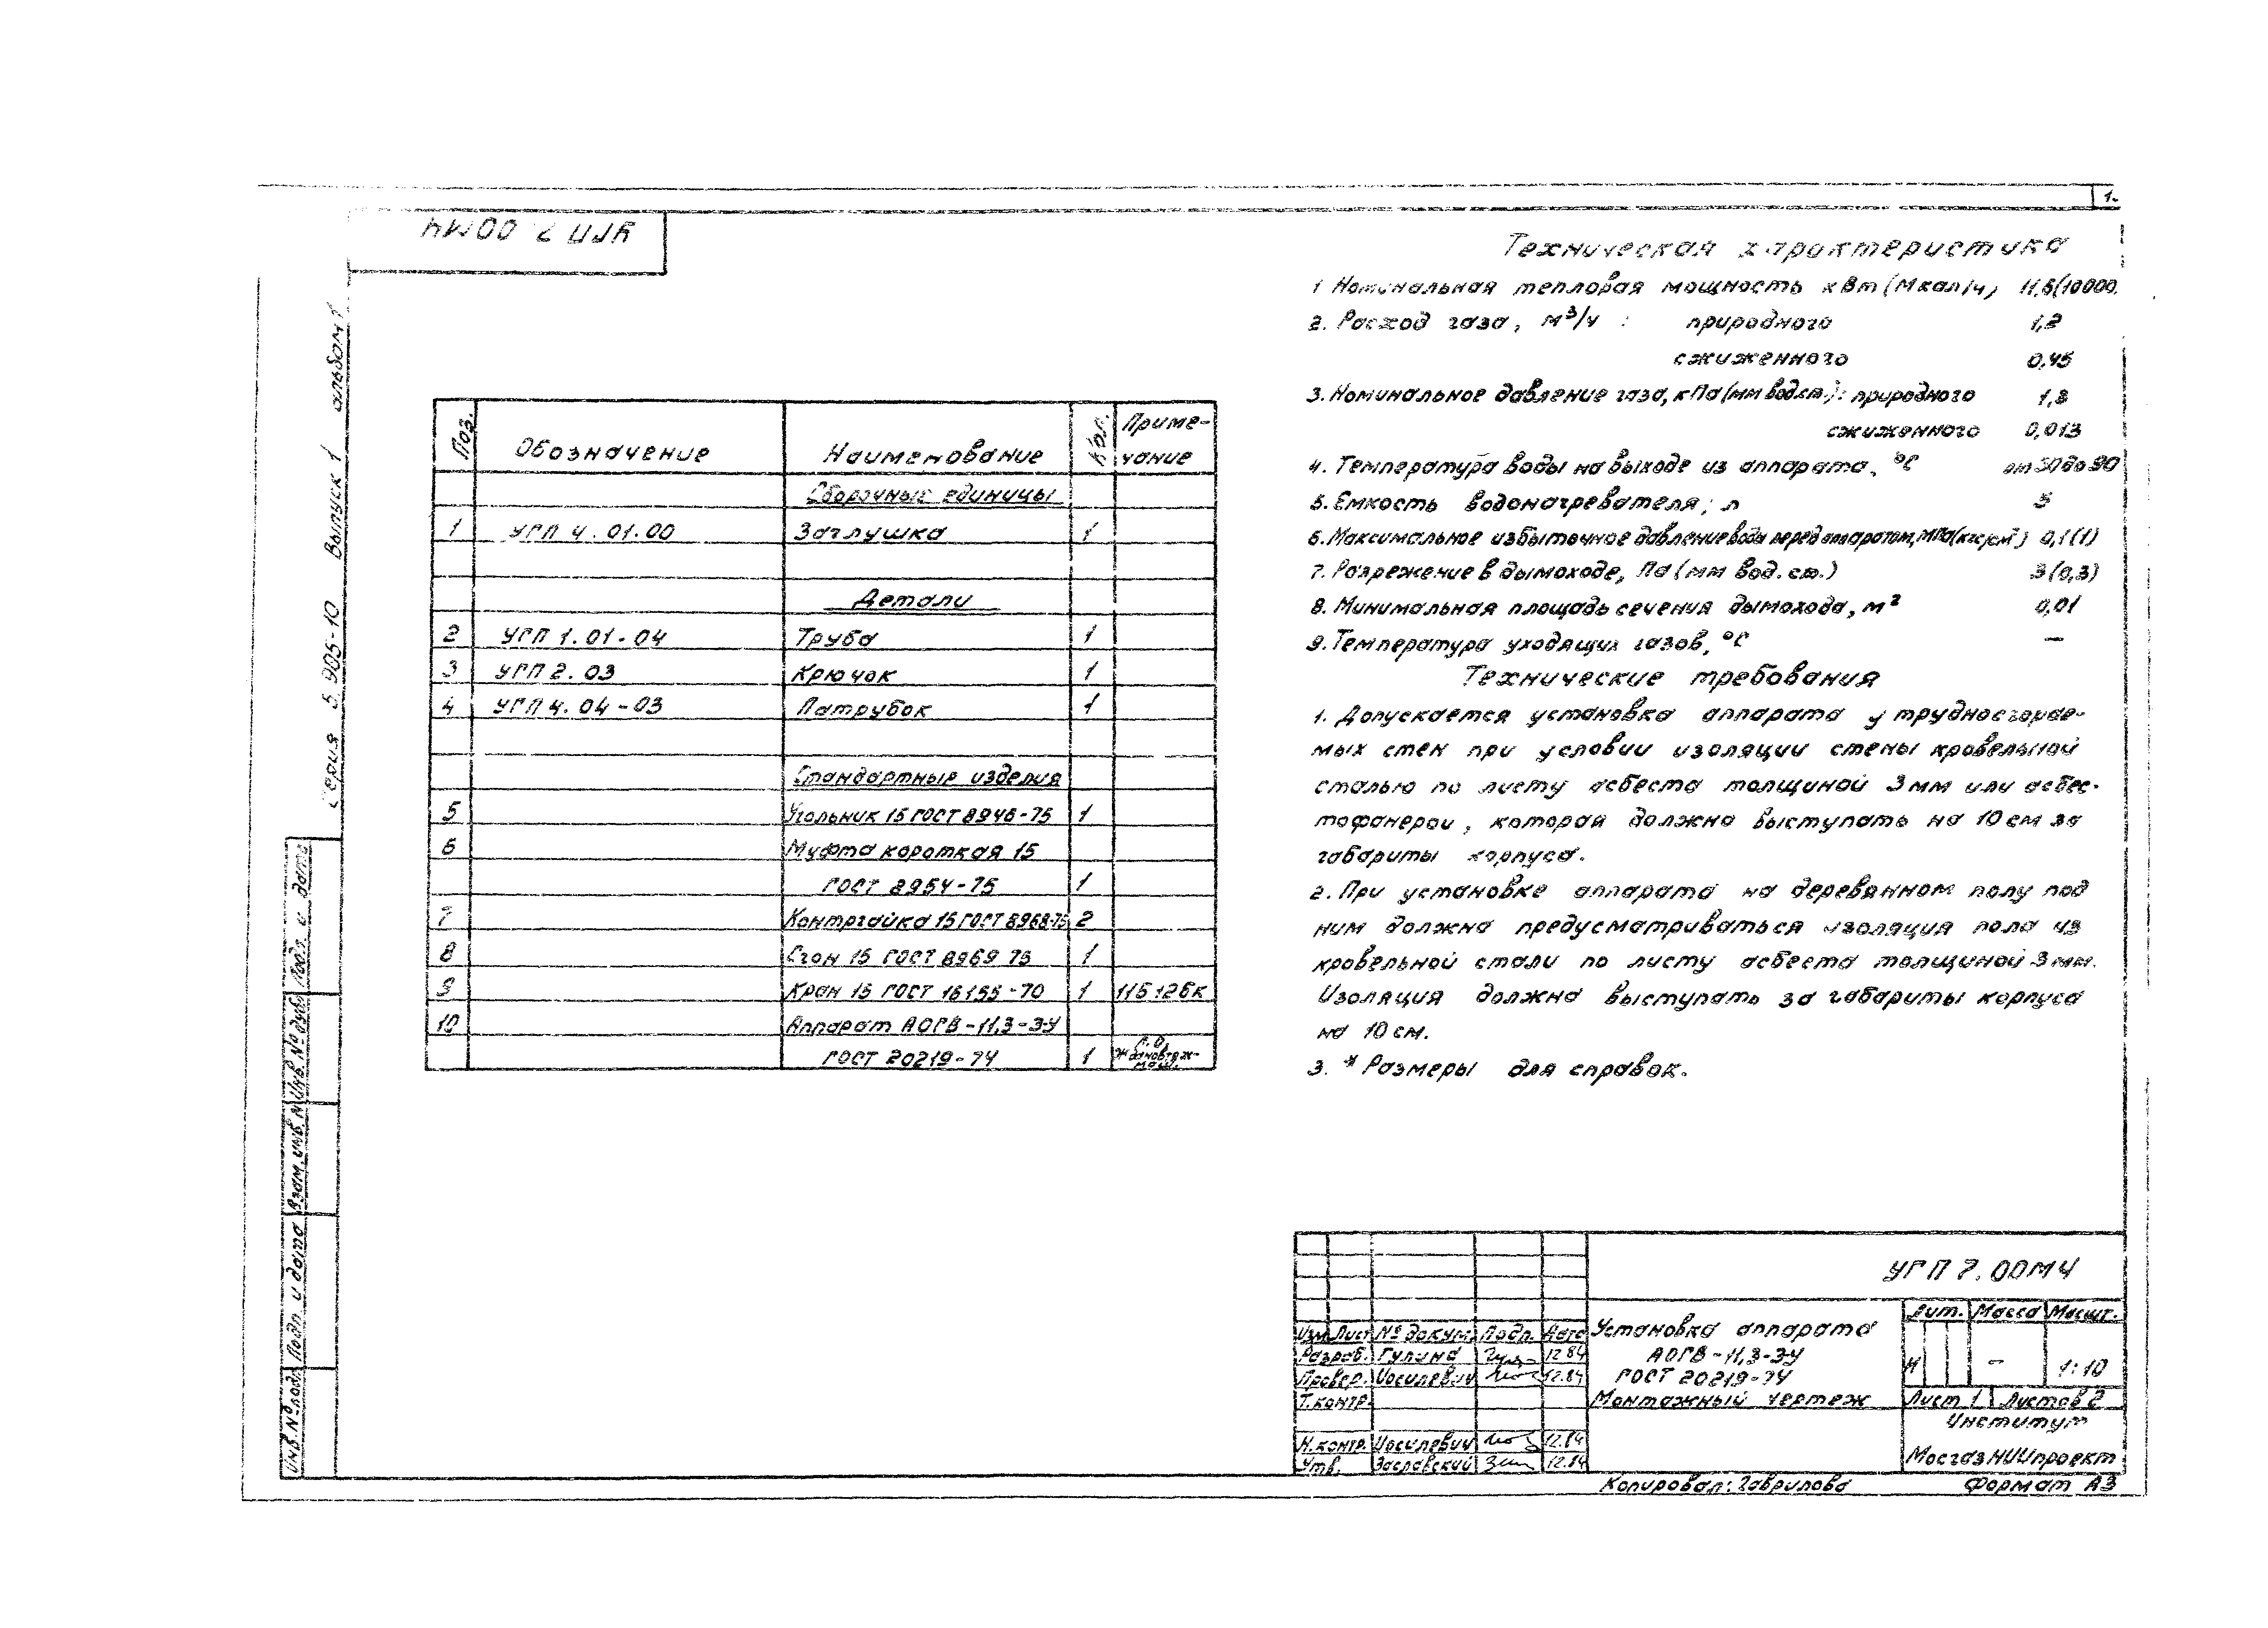 1.
УГП 7.00МЧ
Серия 5.905-10 Выпуск 1 альбом 1
Поз. Обозначение Наименование Кол. Приме-
чание
Сборочные единицы
1 УГП 4.01.00 Заглушка 1
Детали
2 УГП 1.01-04 Труба 1
3 УГП 2.03 Крючок 1
4 УГП 4.04-03 Патрубок 1
Стандартные изделия
5 Угольник 15 ГОСТ 8946-75 1
6 Муфта короткая 15
ГОСТ 8954-75 1
7 Контргайка 15 ГОСТ 8968-75 2
8 Сгон 15 ГОСТ 8969 75 1
9 Кран 15 ГОСТ 16155-70 1 11Б12бк
10 Аппарат АОГВ-11,3-3-У
ГОСТ 20219-74 1 П.О.
Ждановтяж-
маш.
Техническая характеристика
1 Номинальная тепловая мощность кВт (Мкал/ч) 11,6(10000
2. Расход газа, м³/ч : природного 1,2
сжиженного 0,45
3. Номинальное давление газа, кПа (мм вод.ст.): природного 1,3
сжиженного 0,013
4. Температура воды на выходе из аппарата, °С от 50 до 90
5. Емкость водонагревателя; л 5
6. Максимальное избыточное давление воды перед аппаратом, МПа (кгс/см²) 0,1(1)
7. Разрежение в дымоходе, Па (мм вод. ст.) 3(0,3)
8. Минимальная площадь сечения дымохода, м² 0,01
9. Температура уходящих газов, °С —
Технические требования
1. Допускается установка аппарата у трудносгорае-
мых стен при условии изоляции стены кровельной
сталью по листу асбеста толщиной 3 мм или асбес-
тофанерой, которая должна выступать на 10 см за
габариты корпуса.
2. При установке аппарата на деревянном полу под
ним должна предусматриваться изоляция пола из
кровельной стали по листу асбеста толщиной 3 мм.
Изоляция должна выступать за габариты корпуса
на 10 см.
3. * Размеры для справок.
Подп. и дата
Инв. № дубл.
Взам. инв. №
Подп. и дата
Инв. № подл.
УГП 7.00МЧ
Изм. Лист № докум. Подп. Дата
Разраб. Гулина 12.84
Провер. Иосилевич 12.84
Т.контр.
Н.контр. Иосилевич 12.84
Утв. Заславский 12.84
Установка аппарата
АОГВ-11,3-3-У
ГОСТ 20219-74
Монтажный чертеж
Лит. Масса Масшт.
И – 1:10
Лист 1 Листов 2
Институт
МосгазНИИпроект
Копировал: Гаврилова Формат А3